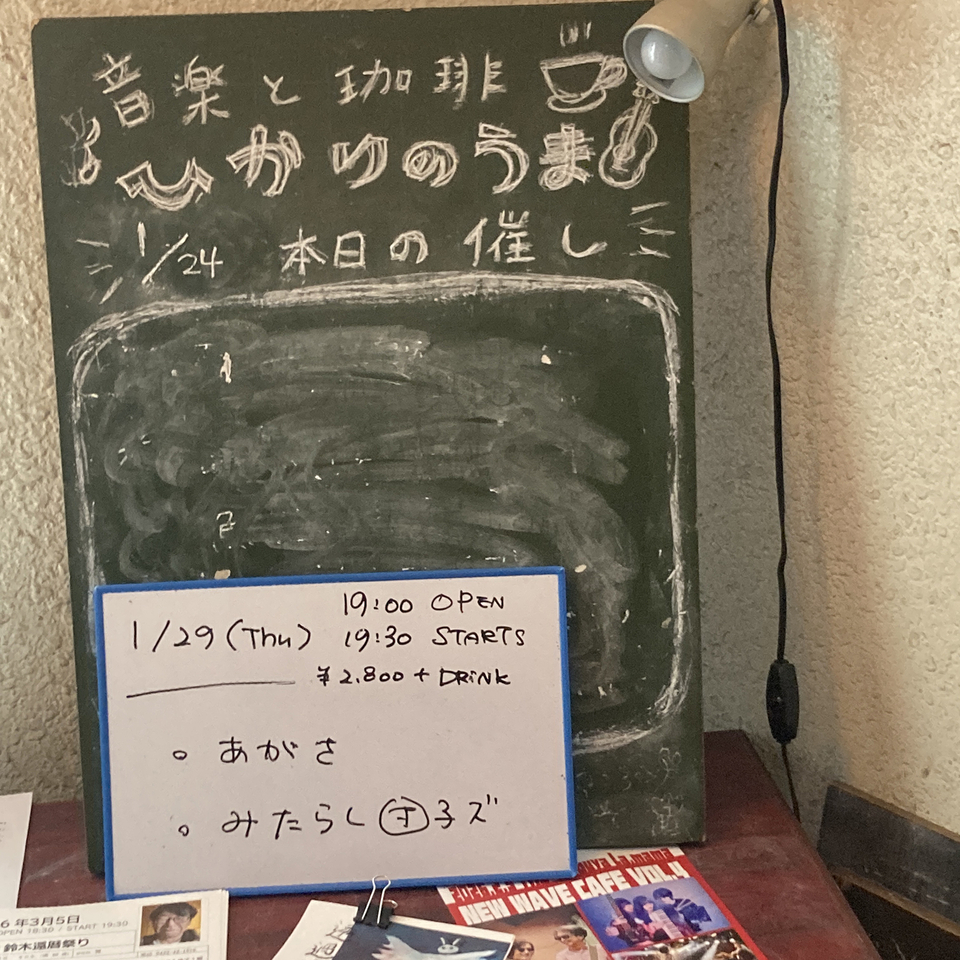 音楽と珈琲
ひかりのうま
1/24 本日の催し
19:00 OPEN
1/29(Thu) 19:30 STARTS
¥2.800+DRINK
。あがさ
。みたらし団子ズ
6年3月5日
OPEN 18:30 / START 19:30
鈴木還暦祭り
La.mama
NEW WAVE CAFE VOL.4